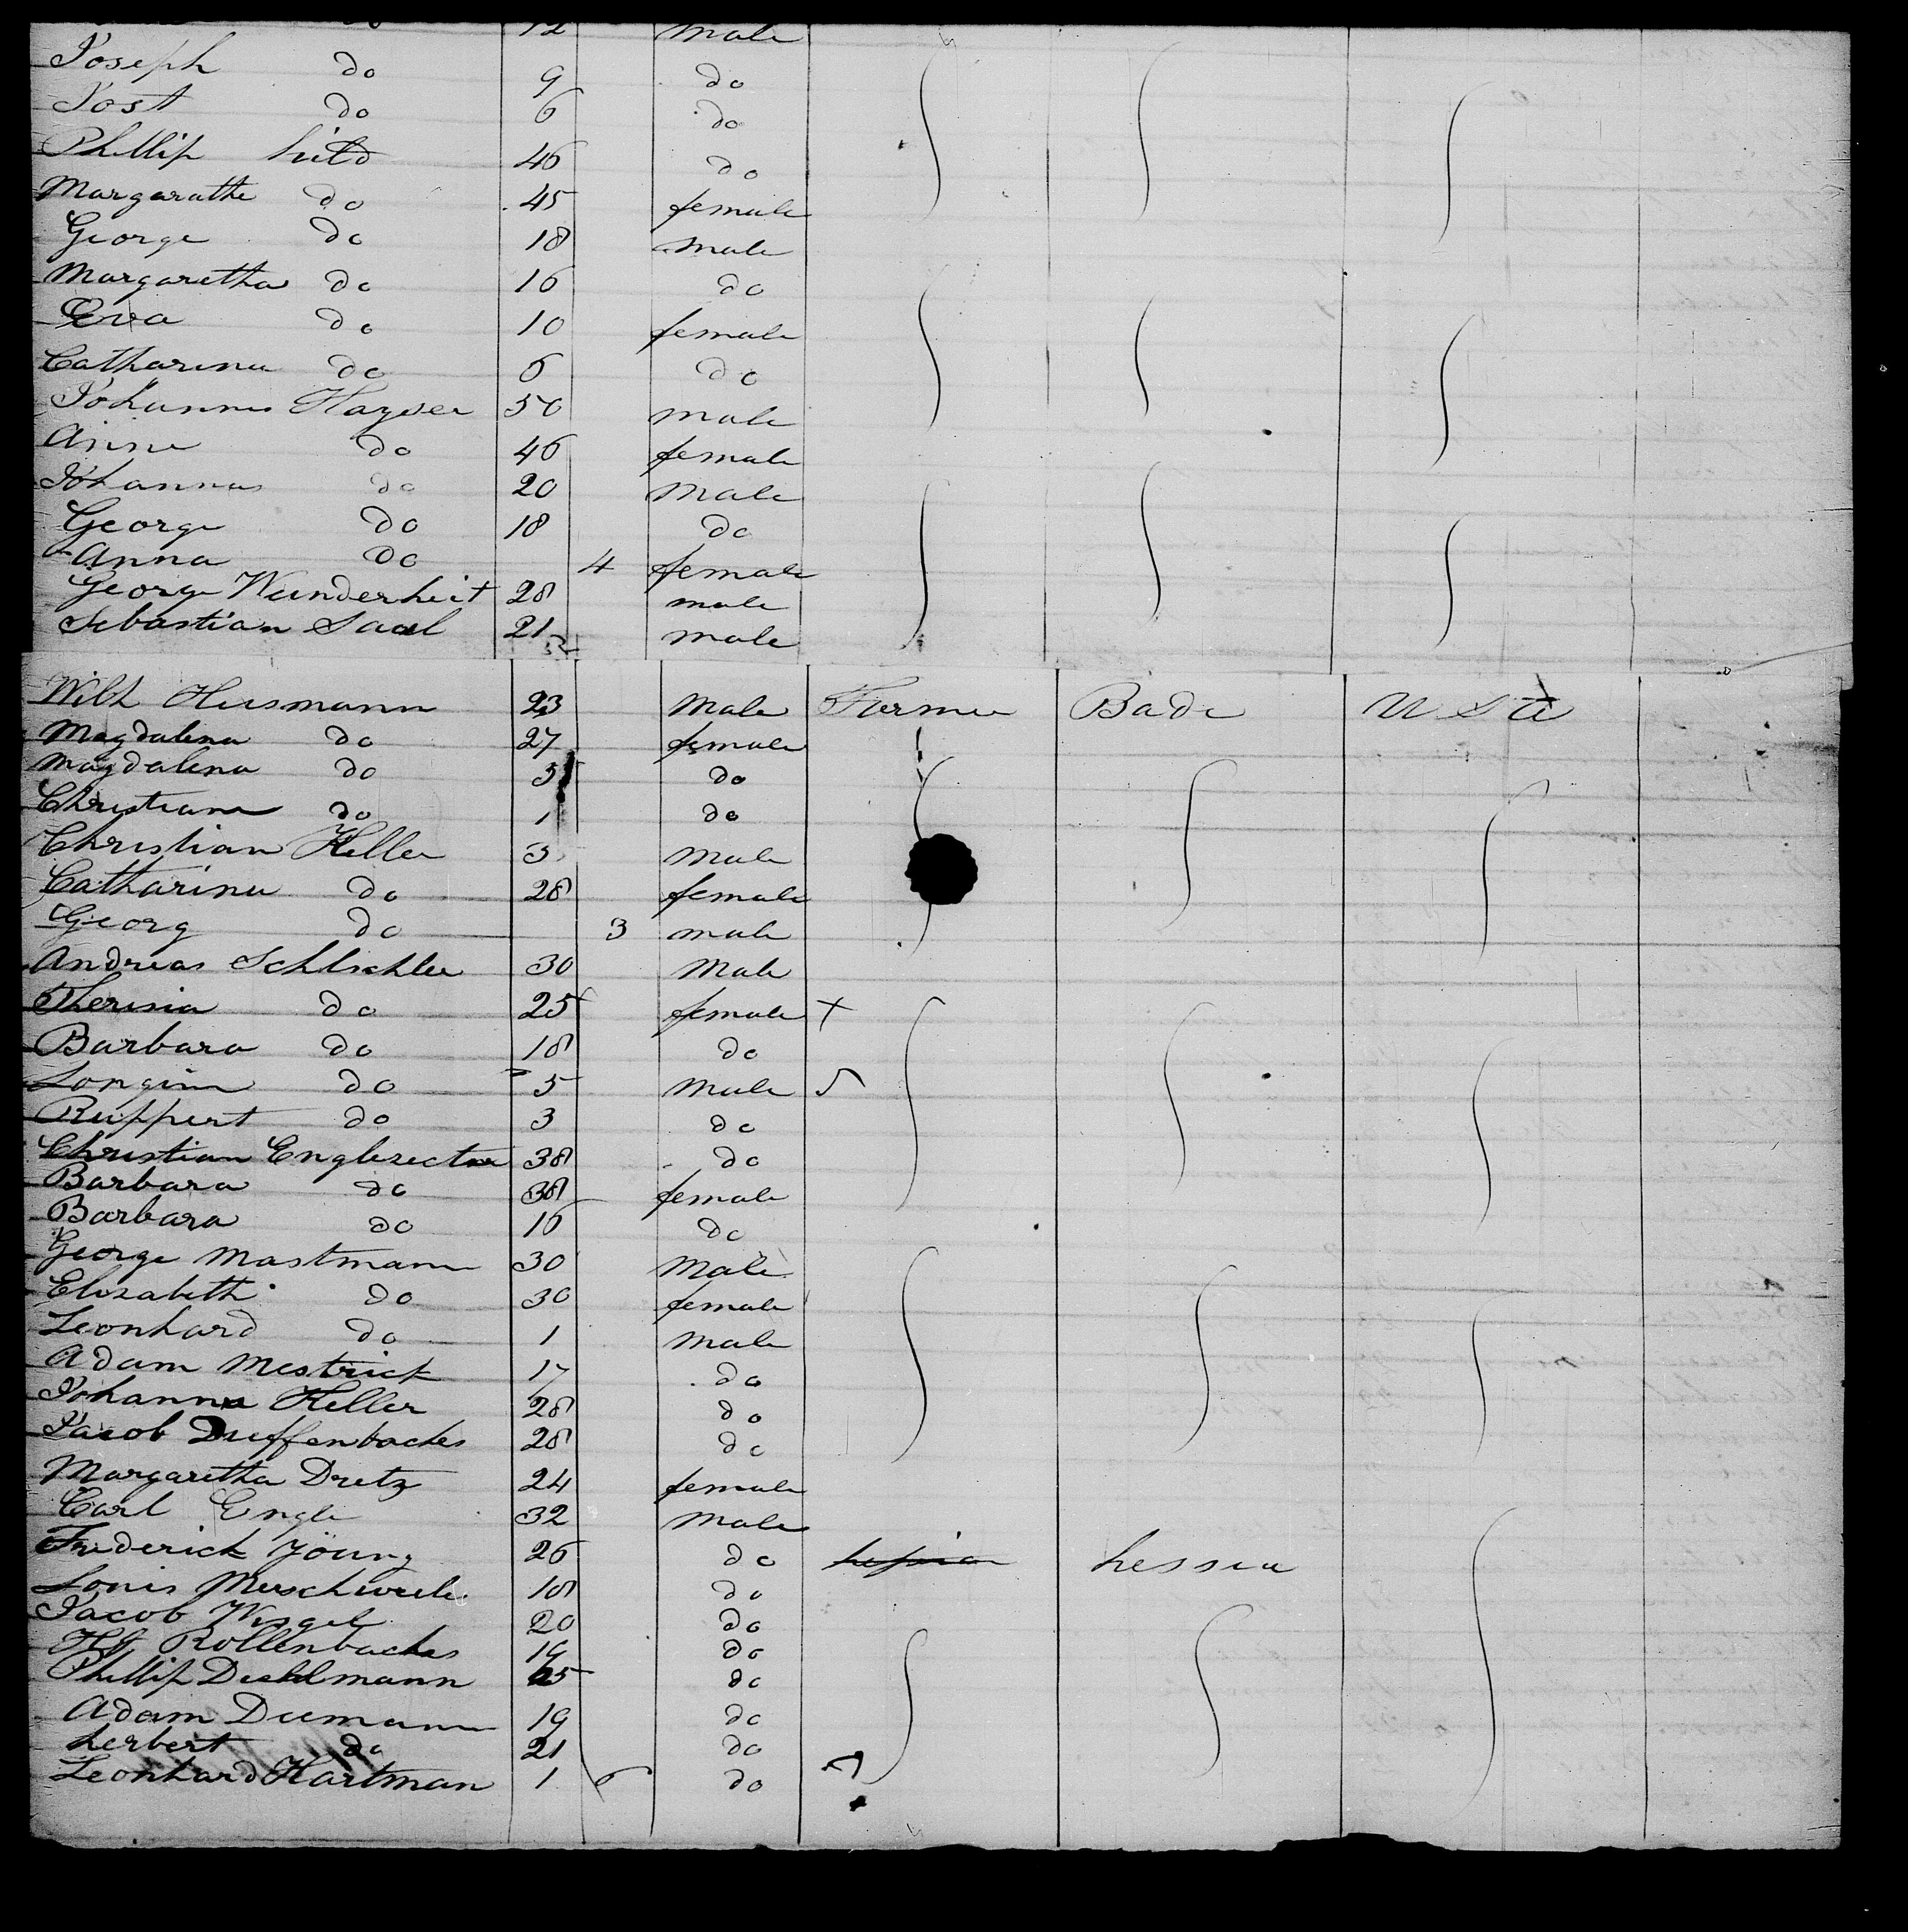 12 male
Joseph do 9 do
Jost do 6 do
Phillip hild 46 do
Margarathe do 45 female
George do 18 male
Margaretha do 16 do
Eva do 10 female
Catharina do 6 do
Johannes Hayser 50 male
Anne do 46 female
Johannes do 20 Male
George do 18 do
Anna do 4 female
George Wunderheit 28 male
Sebastian Saal 21 male
Wilh Husmann 23 Male Farmer Bade U S A
Magdalena do 27 female
Magdalena do 5 do
Christiana do 1 do
Christian Heller 3 Male
Catharina do 28 female
Georg do 3 male
Andreas Schlschler 30 Male
Theresia do 25 female +
Barbara do 18 do
Longin do 5 Male
Ruppert do 3 do
Christian 38 do
Barbara do 38 female
Barbara do 16 do
George Mastmann 30 Male
Elizabeth do 30 female
Leonhard do 1 Male
Adam Mestrick 17 do
Johanna Heller 28 do
Jacob Dieffenbacher 28 do
Margaretha Dretz 24 female
Carl Engle 32 Male
Frederick Young 26 do hessen
Louis 18 do
Jacob Wisgel 20 do
Rollenbacher 19 do
Phillip Diehlmann do
Adam Diemann 19 do
herbert do 21 do
Leonhard Hartman 1 6 do